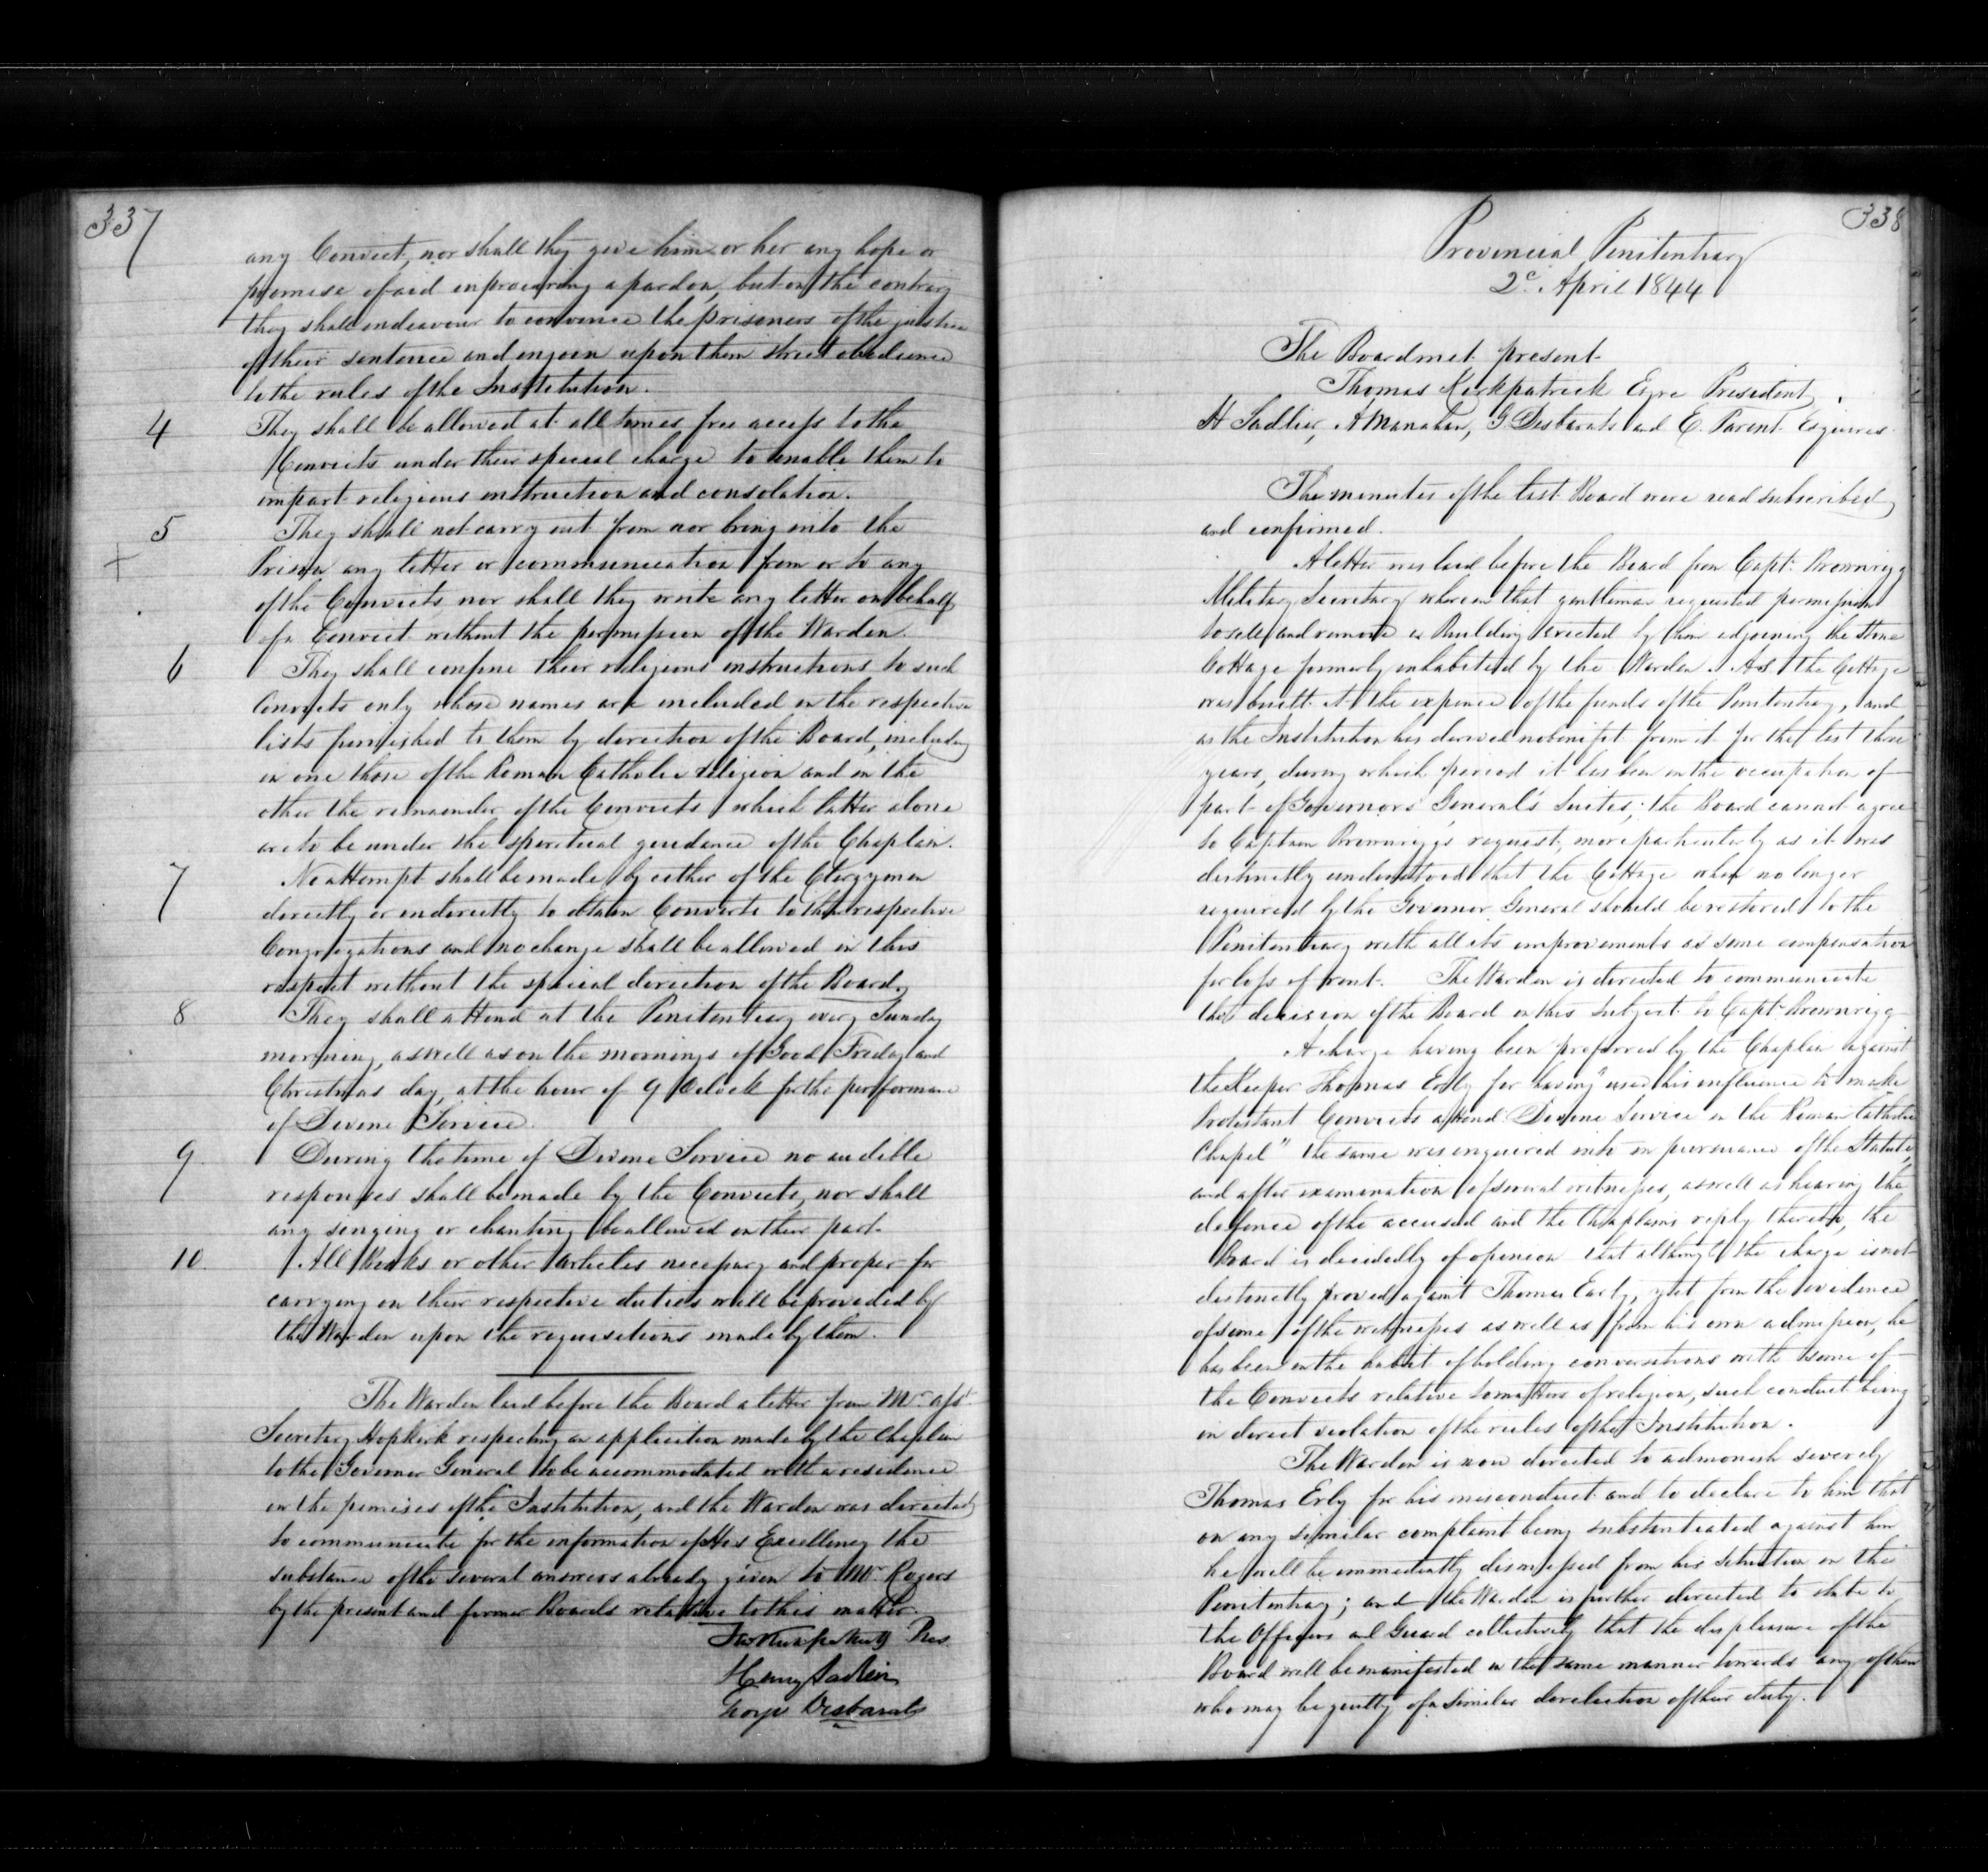 337
any Convict, nor shall they give him or her any hope or
promise of aid in procuring a pardon, but on the contrary
they shall endeavour to convince the prisoners of the justice
of their sentence and enjoin upon them strict obedience
to the rules of the Institution.
4 They shall be allowed at all times free access to the
Convicts under their special charge to enable them to
impart religious instruction and consolation.
5 They shall not carry out from nor bring into the
+ Prison any letter or communication from or to any
of the Convicts, nor shall they write any letter on behalf
of a Convict without the permission of the Warden.
6 They shall confine their religious instructions to such
Convicts only whose names are included in the respective
lists furnished to them by direction of the Board, including
in one those of the Roman Catholic religion and in the
other the remainder of the Convicts which latter alone
are to be under the spiritual guidance of the Chaplain.
7 No attempt shall be made by either of the Clergymen
directly or indirectly to obtain Converts to their respective
Congregations and no change shall be allowed in this
respect without the special direction of the Board.
8 They shall attend at the Penitentiary every Sunday
morning, as well as on the mornings of Good Friday and
Christmas day, at the hour of 9 Oclock for the performance
of Divine Service.
9. During the time of Divine Service no audible
responses shall be made by the Convicts, nor shall
any singing or chanting be allowed on their part.
10. All Books or other articles necessary and proper for
carrying on their respective duties will be provided by
the Warden upon the requisitions made by them.
The Warden laid before the Board a letter from Mr. Asst.
Secretary Hopkirk respecting an application made by the Chaplain
to the Governor General to be accommodated with a residence
on the premises of the Institution, and the Warden was directed
to communicate for the information of His Excellency the
substance of the several answers already given to Mr. Rogers
by the present and former Boards relative to this matter.
Thos Kirkpatrick Pres.
Henry Sadlier
George Desbarats
338
Provincial Penitentiary
2d. April 1844
The Board met present
Thomas Kirkpatrick Esqre President,
H Sadlier, A Manahan, G Desbarats and E. Parent Esquires.
The minutes of the last Board were read subscribed
and confirmed.
A letter was laid before the Board from Capt. Brownrigg
Military Secretary wherein that gentleman requested permission
to sell and remove a Building erected by him adjoining the Stone
Cottage formerly inhabited by the Warden. As the Cottage
was built at the expence of the funds of the Penitentiary, and
as the Institution has derived no benifit from it for the last three
years, during which period it has been in the occupation of
part of Governors General's Suites; the Board cannot agree
to Captain Brownriggs request, more particularly as it was
distinctly understood that the Cottage when no longer
required by the Governor General should be restored to the
Penitentiary with all its improvements as some compensation
for loss of rent. The Warden is directed to communicate
the decision of the Board on this subject to Capt. Brownrigg
A charge having been preferred by the Chaplain against
the Keeper Thomas Erly for having "used his influence to make
Protestant Convicts attend Divine Service in the Roman Catholic
Chapel" the same was enquired into in pursuance of the Statute,
and after examination of several witnesses, as well as hearing the
defence of the accused and the Chaplains reply thereto, the
Board is decidedly of opinion that although the charge is not
distinctly proved against Thomas Early, yet from the evidence
of some of the witnesses as well as from his own admission, he
has been in the habit of holding conversations with some of
the Convicts relative to matters of religion, such conduct being
in direct violation of the rules of the Institution.
The Warden is now directed to admonish severely
Thomas Erly for his misconduct and to declare to him that
on any similar complaint being substantiated against him
he will be immediately dismissed from his situation in the
Penitentiary; and the Warden is further directed to state to
the Officers and Guard collectively that the displeasure of the
Board will be manifested in the same manner towards any of them
who may be guilty of a similar dereliction of their duty.